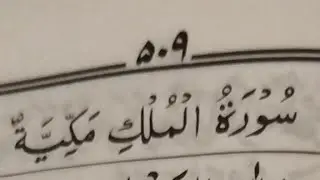 ۵۰۹
سُوْرَةُ الْمُلْكِ مَكِّيَّةٌ